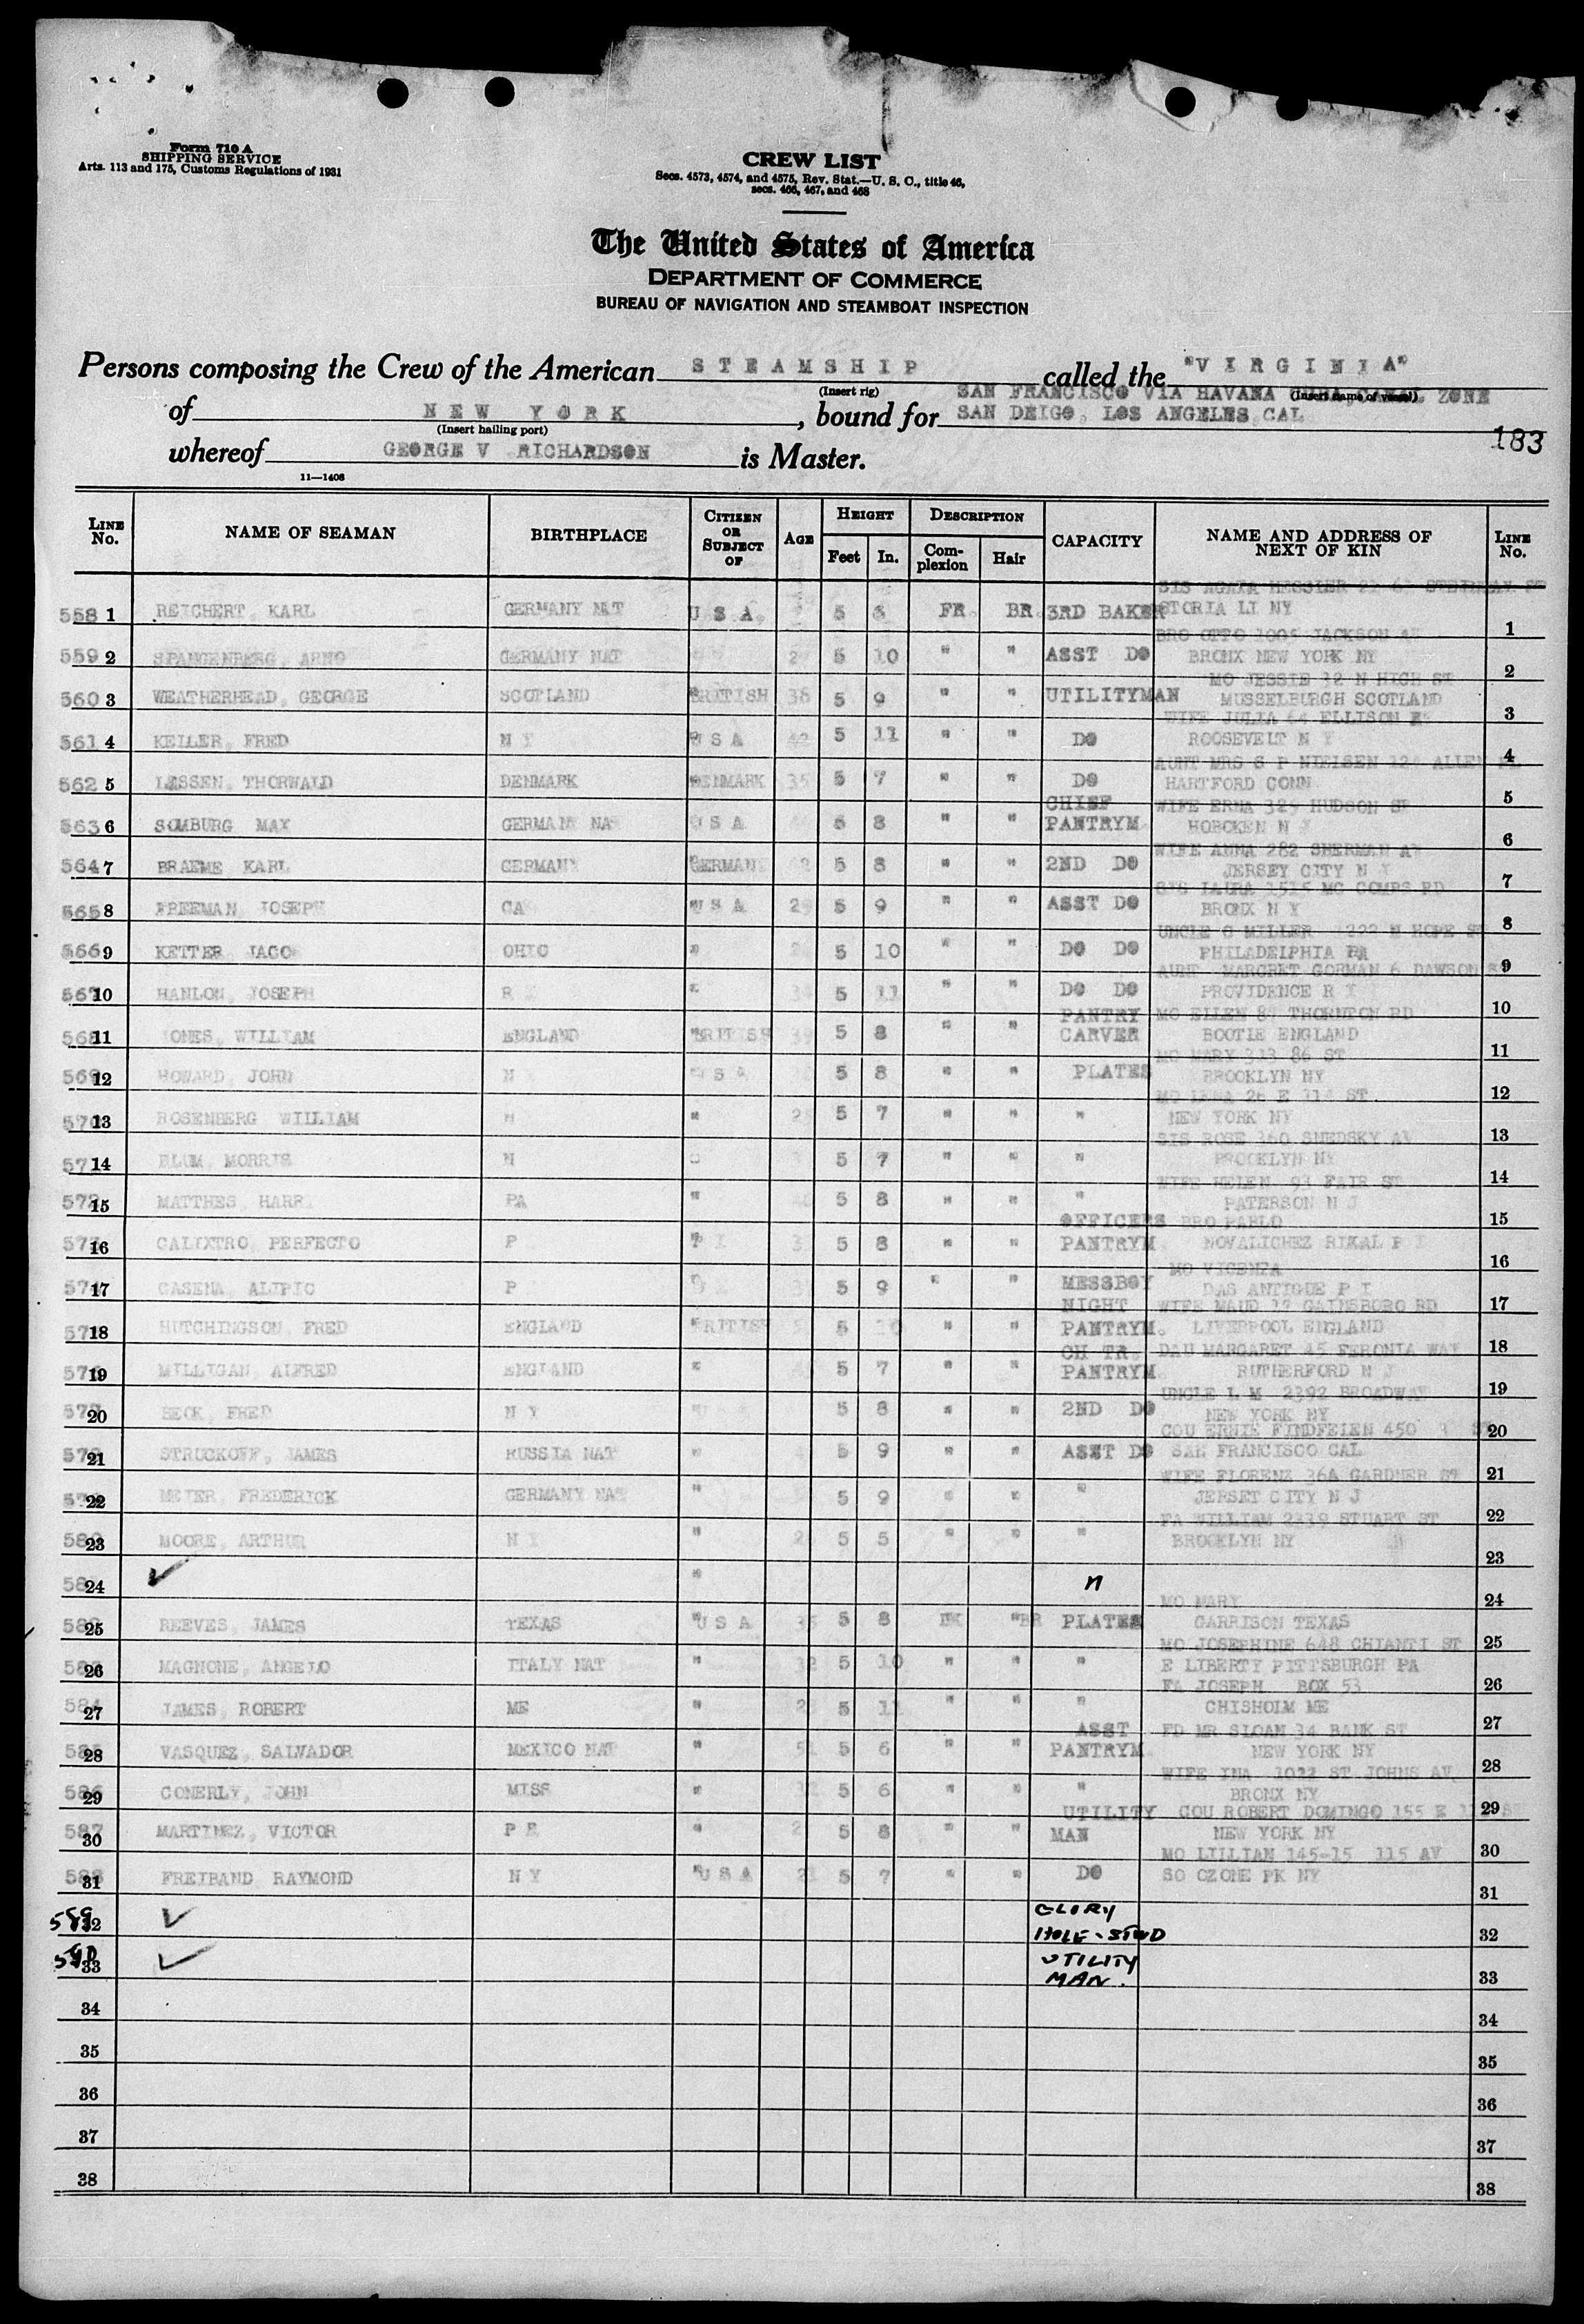 Form 710 A
SHIPPING SERVICE
Arts. 113 and 175, Customs Regulations of 1931
CREW LIST
Secs. 4573, 4574, and 4575, Rev. Stat.—U. S. C., title 46,
secs. 466, 467, and 468
The United States of America
DEPARTMENT OF COMMERCE
BUREAU OF NAVIGATION AND STEAMBOAT INSPECTION
Persons composing the Crew of the American STEAMSHIP called the "VIRGINIA"
(Insert rig) (Insert name of vessel)
SAN FRANCISCO VIA HAVANA CUBA, CANAL ZONE
of NEW YORK, bound for SAN DEIGO, LOS ANGELES, CAL
(Insert hailing port)
183
whereof GEORGE V RICHARDSON is Master.
11—1408
LINE No. NAME OF SEAMAN BIRTHPLACE CITIZEN OR SUBJECT OF AGE HEIGHT Feet In. DESCRIPTION Complexion Hair CAPACITY NAME AND ADDRESS OF NEXT OF KIN LINE No.
SIS AGATA HESSLER
558 1 REICHERT, KARL GERMANY NAT U S A 5 6 FR. BR. 3RD BAKER STORIA LI NY 1
BRO OTTO JACKSON AV
559 2 SPANGENBERG, ARNO GERMANY NAT 5 10 " " ASST DO BRONX NEW YORK NY 2
MO JESSIE 32 N HIGH ST
560 3 WEATHERHEAD, GEORGE SCOTLAND BRITISH 38 5 9 " " UTILITYMAN MUSSELBURGH SCOTLAND 3
WIFE JULIA 64 ELLISON
561 4 KEILER, FRED N Y U S A 42 5 11 " " DO ROOSEVELT N Y 4
AUNT MRS G P NIELSEN ALLEN
562 5 LESSEN, THORWALD DENMARK DENMARK 35 5 7 " " DO HARTFORD CONN 5
CHIEF WIFE ERNA 329 HUDSON ST
563 6 SOMBURG MAX GERMANY NA U S A 5 8 " " PANTRYM HOBOKEN N J 6
WIFE ANNA 282 SHERMAN AV
564 7 BRAEME KARL GERMANY GERMANY 42 5 8 " " 2ND DO JERSEY CITY N J 7
SIS LAURA 1515 MC COMBS RD
565 8 FREEMAN JOSEPH GA U S A 29 5 9 " " ASST DO BRONX N Y 8
UNCLE G MILLER N HOPE ST
566 9 KETTER JACO OHIO " 5 10 " " DO DO PHILADELPHIA PA 9
AUNT MARGRET GORMAN 6 DAWSON
567 10 HANLON, JOSEPH R I " 5 11 " " DO DO PROVIDENCE R I 10
PANTRY MO EILEN 87 THORNTON RD
568 11 JONES, WILLIAM ENGLAND BRITISH 39 5 8 " " CARVER BOOTLE ENGLAND 11
MO MARY 86 ST
569 12 HOWARD, JOHN N U S A 5 8 " " PLATES BROOKLYN NY 12
MO LENA 26 E ST
570 13 ROSENBERG WILLIAM N " 5 7 " " " NEW YORK NY 13
SIS ROSE 360 SNEDSKY AV
571 14 BLUM, MORRIS N 5 7 " " " BROOKLYN NY 14
WIFE HELEN 93 FAIR ST
572 15 MATTHES, HARR PA " 5 8 " " " PATERSON N J 15
OFFICERS BRO PABLO
573 16 CALIXTRO, PERFECTO P P I 5 8 " " PANTRYM NOVALICHEZ RIZAL P I 16
MO VICENTA
574 17 CASENA, ALIPIO P 5 9 " " MESSBOY DAS ANTIGUE P I 17
NIGHT WIFE MAUD 17 GAINSBORO RD
575 18 HUTCHINGSON, FRED ENGLAND BRITISH 5 10 " " PANTRYM. LIVERPOOL ENGLAND 18
CH TR. DAU MARGARET 45 FERONIA WAY
576 19 MILLIGAN, ALFRED ENGLAND " 5 7 " " PANTRYM RUTHERFORD N J 19
UNCLE L M 2392 BROADWAY
577 20 BECK, FRED N Y 5 8 " " 2ND DO NEW YORK NY 20
COU ERNIE FINDFEIEN 450
578 21 STRUCKOFF, JAMES RUSSIA NAT " 5 9 " " ASST DO SAN FRANCISCO CAL 21
WIFE FLORENZ 36A GARDNER
579 22 MEIER, FREDERICK GERMANY NAT " 5 9 " " " JERSET CITY N J 22
FA WILLIAM 2339 STUART ST
580 23 MOORE, ARTHUR N Y " 5 5 " " " BROOKLYN NY 23
581 24 ✓ " " 24
MO MARY
582 25 REEVES, JAMES TEXAS "U S A 35 5 8 DK "BR PLATES GARRISON TEXAS 25
MO JOSEPHINE 648 CHIANTI ST
583 26 MAGNONE, ANGELO ITALY NAT " 32 5 10 " " " E LIBERTY PITTSBURGH PA 26
FA JOSEPH BOX 53
584 27 JAMES, ROBERT ME " 5 11 " " " CHISHOLM ME 27
ASST FD MR SLOAN 34 BANK ST
585 28 VASQUEZ, SALVADOR MEXICO NAT " 51 5 6 " " PANTRYM NEW YORK NY 28
WIFE INA ST JOHNS AV
586 29 CONERLY, JOHN MISS " 5 6 " " " BRONX NY 29
UTILITY COU ROBERT DOMINGO 155 E
587 30 MARTINEZ, VICTOR P R " 5 8 " " MAN NEW YORK NY 30
MO LILLIAN 145-15 115 AV
588 31 FREIBAND RAYMOND N Y "U S A 21 5 7 " " DO SO OZONE PK NY 31
589 32 ✓ GLORY HOLE-STWD 32
590 33 ✓ UTILITY MAN. 33
34 34
35 35
36 36
37 37
38 38